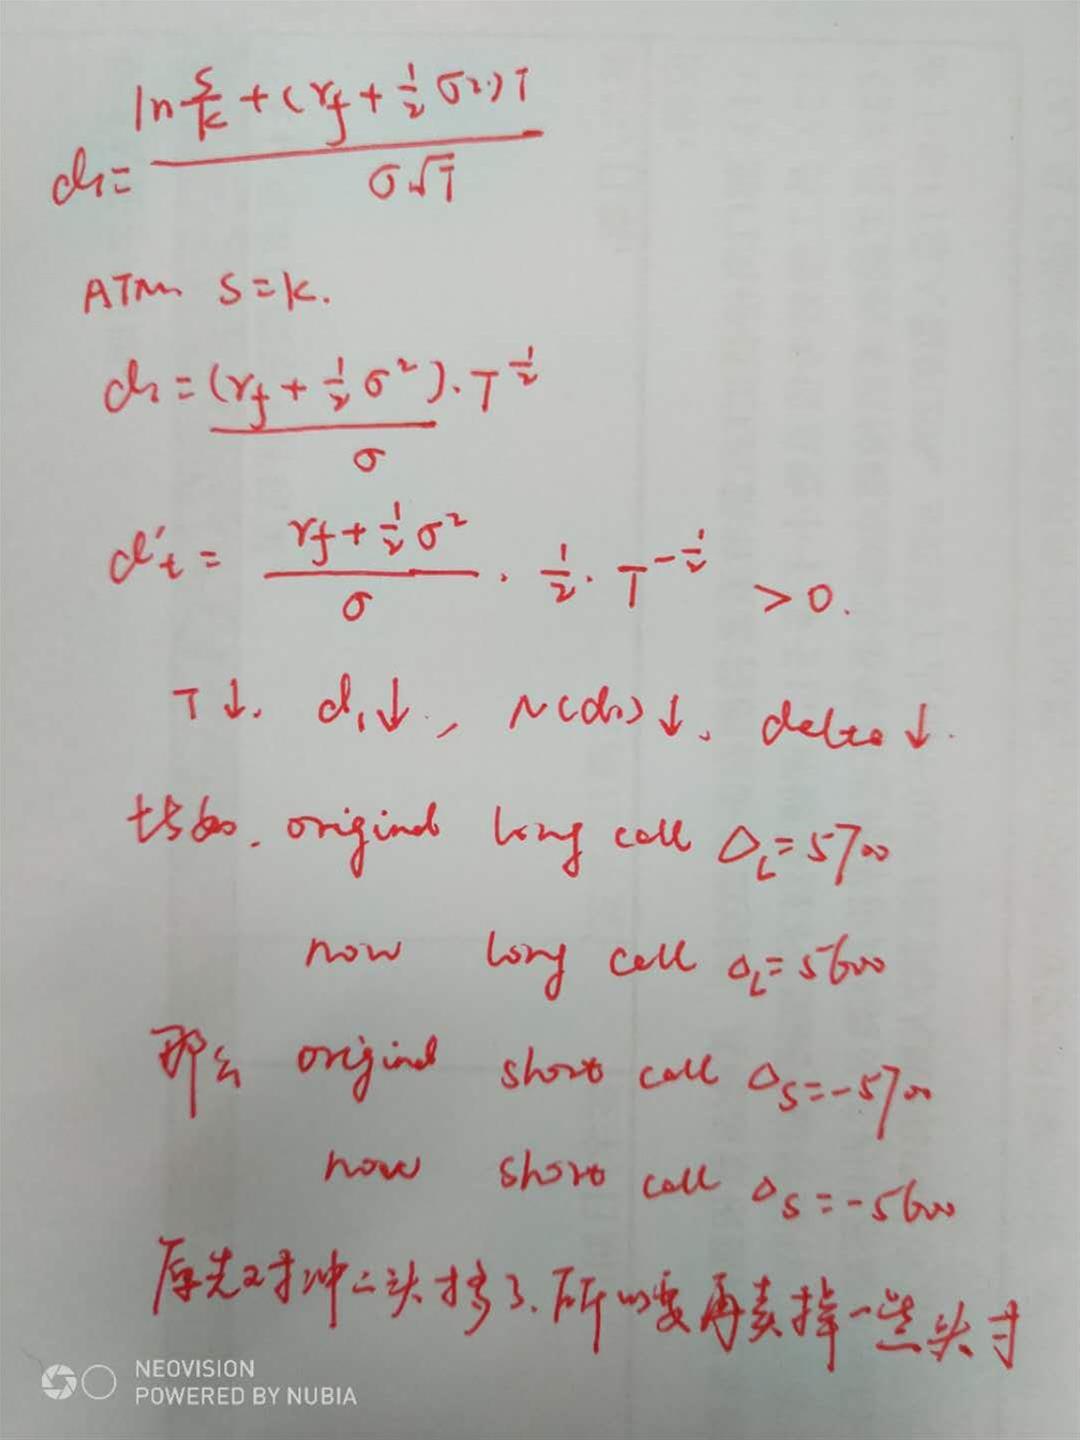 d₁ = (ln S/K + (rf + ½ σ²)T) / (σ√T)
ATM S=K.
d₁ = (rf + ½ σ²) / σ · T^½
d't = (rf + ½ σ²) / σ · ½ · T^-½ > 0.
T↓. d₁↓., N(d₁)↓. delta↓.
比如. original long call Δ_L=5700
now long call Δ_L=5600
那么 original short call Δ_S=-5700
now short call Δ_S=-5600
原先对冲二头 了. 所以要再卖掉一些头寸
NEOVISION
POWERED BY NUBIA